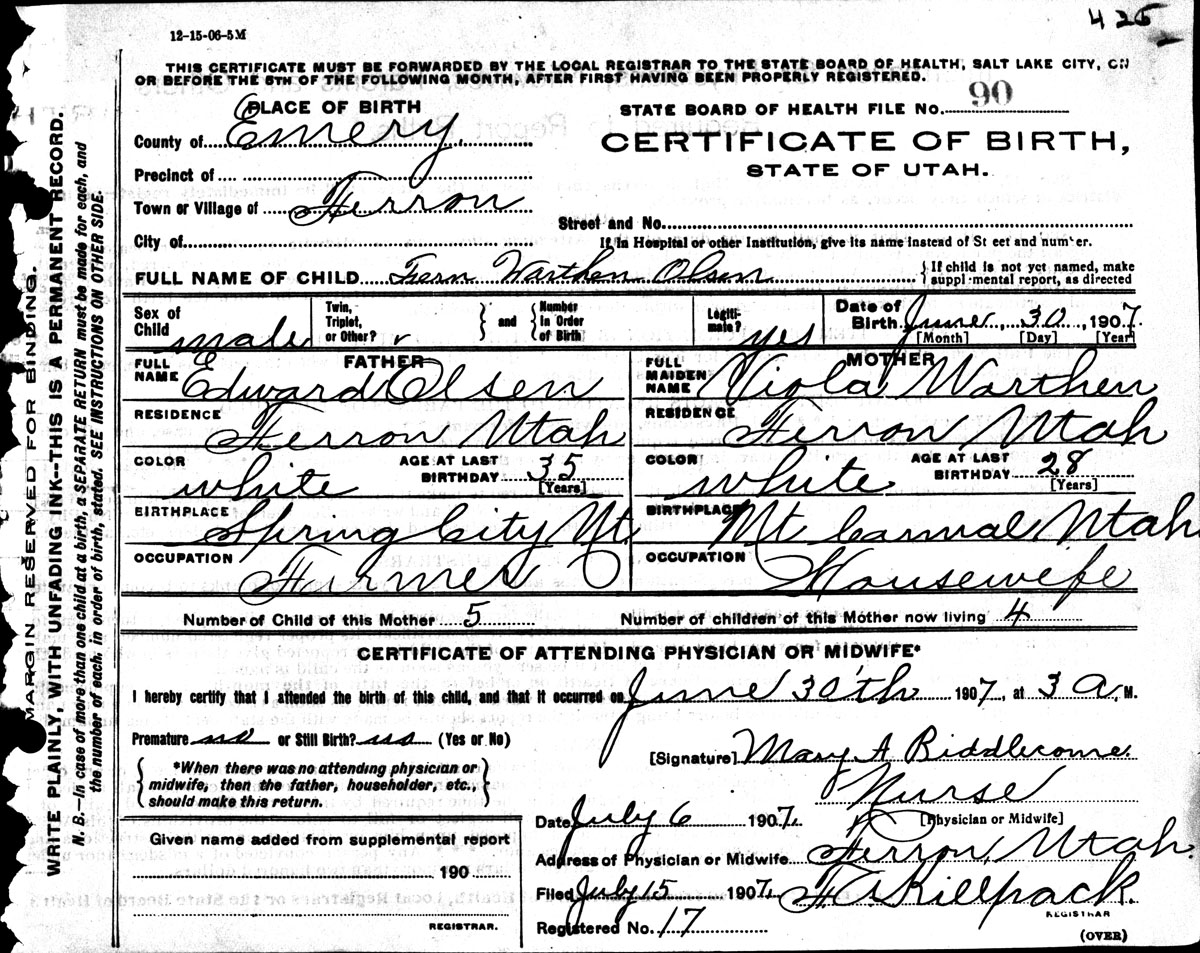 425
12-15-06-5M
THIS CERTIFICATE MUST BE FORWARDED BY THE LOCAL REGISTRAR TO THE STATE BOARD OF HEALTH, SALT LAKE CITY, ON
OR BEFORE THE 5TH OF THE FOLLOWING MONTH, AFTER FIRST HAVING BEEN PROPERLY REGISTERED.
PLACE OF BIRTH
STATE BOARD OF HEALTH FILE NO. 90
County of Emery
CERTIFICATE OF BIRTH,
STATE OF UTAH.
Precinct of
Town or Village of Ferron
Street and No.
City of
If in Hospital or other Institution, give its name instead of Street and number.
FULL NAME OF CHILD Fern Warthen Olsen
{ If child is not yet named, make supplemental report, as directed
Sex of Child male
Twin, Triplet, or Other?
} and { Number in Order of Birth
Legitimate? yes
Date of Birth June 30, 1907.
[Month] [Day] [Year]
FATHER
FULL NAME Edward Olsen
RESIDENCE Ferron Utah
COLOR white AGE AT LAST BIRTHDAY 35 [Years]
BIRTHPLACE Spring City Ut.
OCCUPATION Farmer
MOTHER
FULL MAIDEN NAME Viola Warthen
RESIDENCE Ferron Utah
COLOR white AGE AT LAST BIRTHDAY 28 [Years]
BIRTHPLACE Mt Carmal Utah
OCCUPATION Housewife
Number of Child of this Mother 5 Number of children of this Mother now living 4
CERTIFICATE OF ATTENDING PHYSICIAN OR MIDWIFE*
I hereby certify that I attended the birth of this child, and that it occurred on June 30'th 1907, at 3 A. M.
Premature no or Still Birth? no (Yes or No)
[Signature] Mary A Biddlecome.
*When there was no attending physician or
midwife, then the father, householder, etc.,
should make this return.
Nurse
[Physician or Midwife]
Date July 6 1907.
Address of Physician or Midwife Ferron, Utah.
Given name added from supplemental report
190
REGISTRAR.
Filed July 15 1907. Killpack.
REGISTRAR
Registered No. 17
(OVER)
MARGIN RESERVED FOR BINDING.
WRITE PLAINLY, WITH UNFADING INK--THIS IS A PERMANENT RECORD.
N. B.--In case of more than one child at a birth, a SEPARATE RETURN must be made for each, and
the number of each, in order of birth, stated. SEE INSTRUCTIONS ON OTHER SIDE.